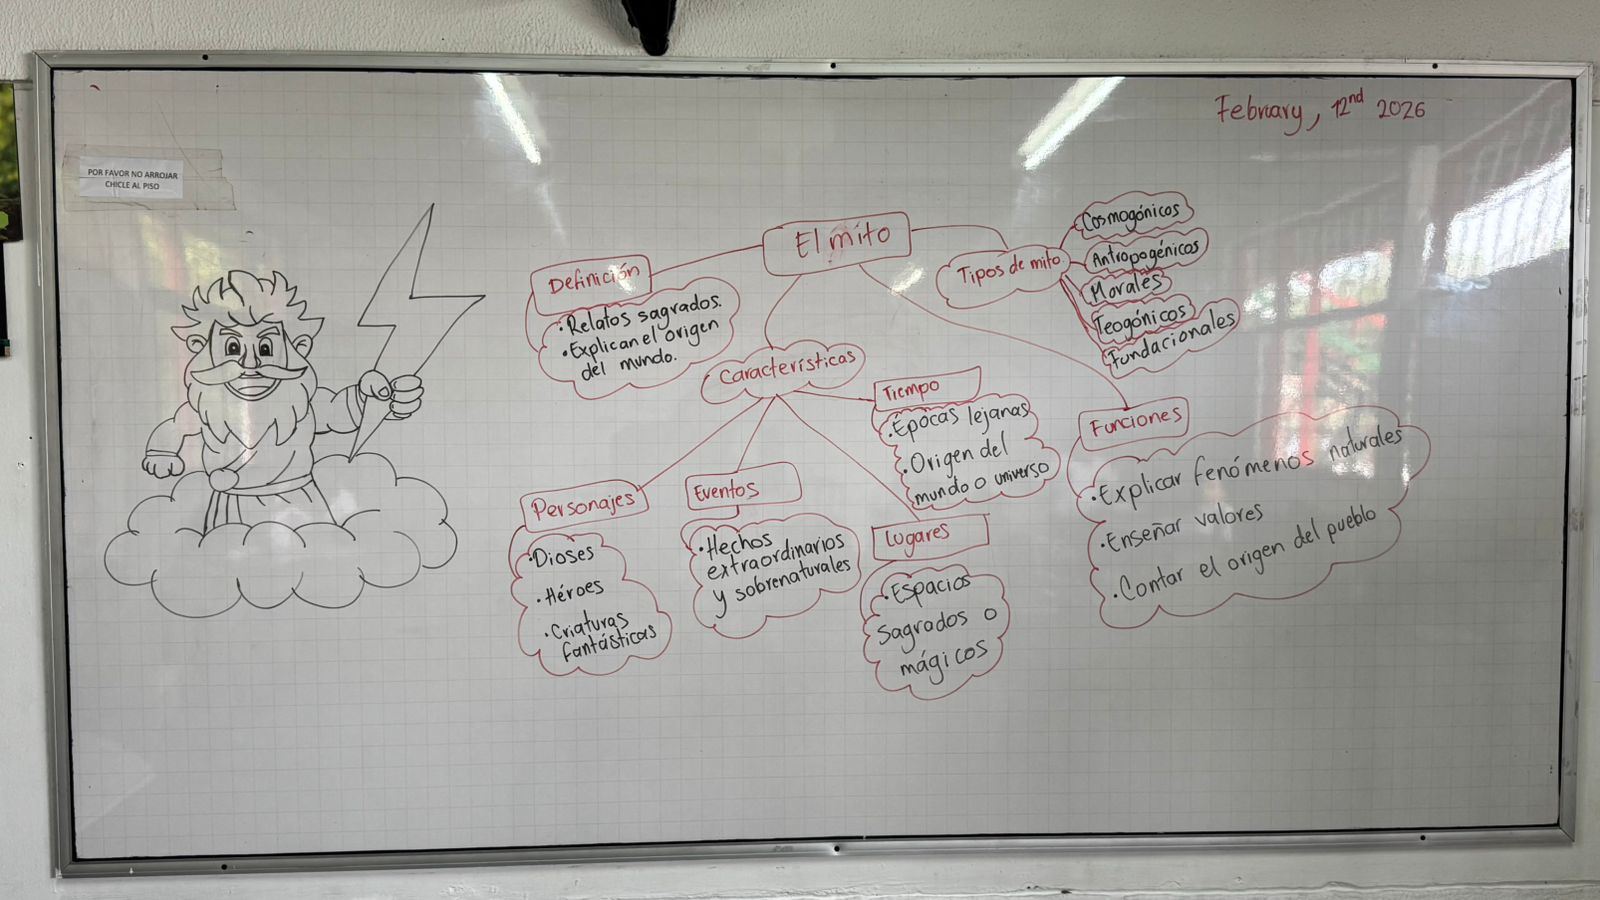 February, 12nd 2026
POR FAVOR NO ARROJAR
CHICLE AL PISO
El mito
Definición
• Relatos sagrados.
• Explican el origen
del mundo.
Tipos de mito
Cosmogónicos
Antropogénicos
Morales
Teogónicos
Fundacionales
Características
Personajes
• Dioses
• Héroes
• Criaturas
fantásticas
Eventos
• Hechos
extraordinarios
y sobrenaturales
Tiempo
• Épocas lejanas
• Origen del
mundo o universo
Lugares
• Espacios
Sagrados o
mágicos
Funciones
• Explicar fenómenos naturales
• Enseñar valores
• Contar el origen del pueblo